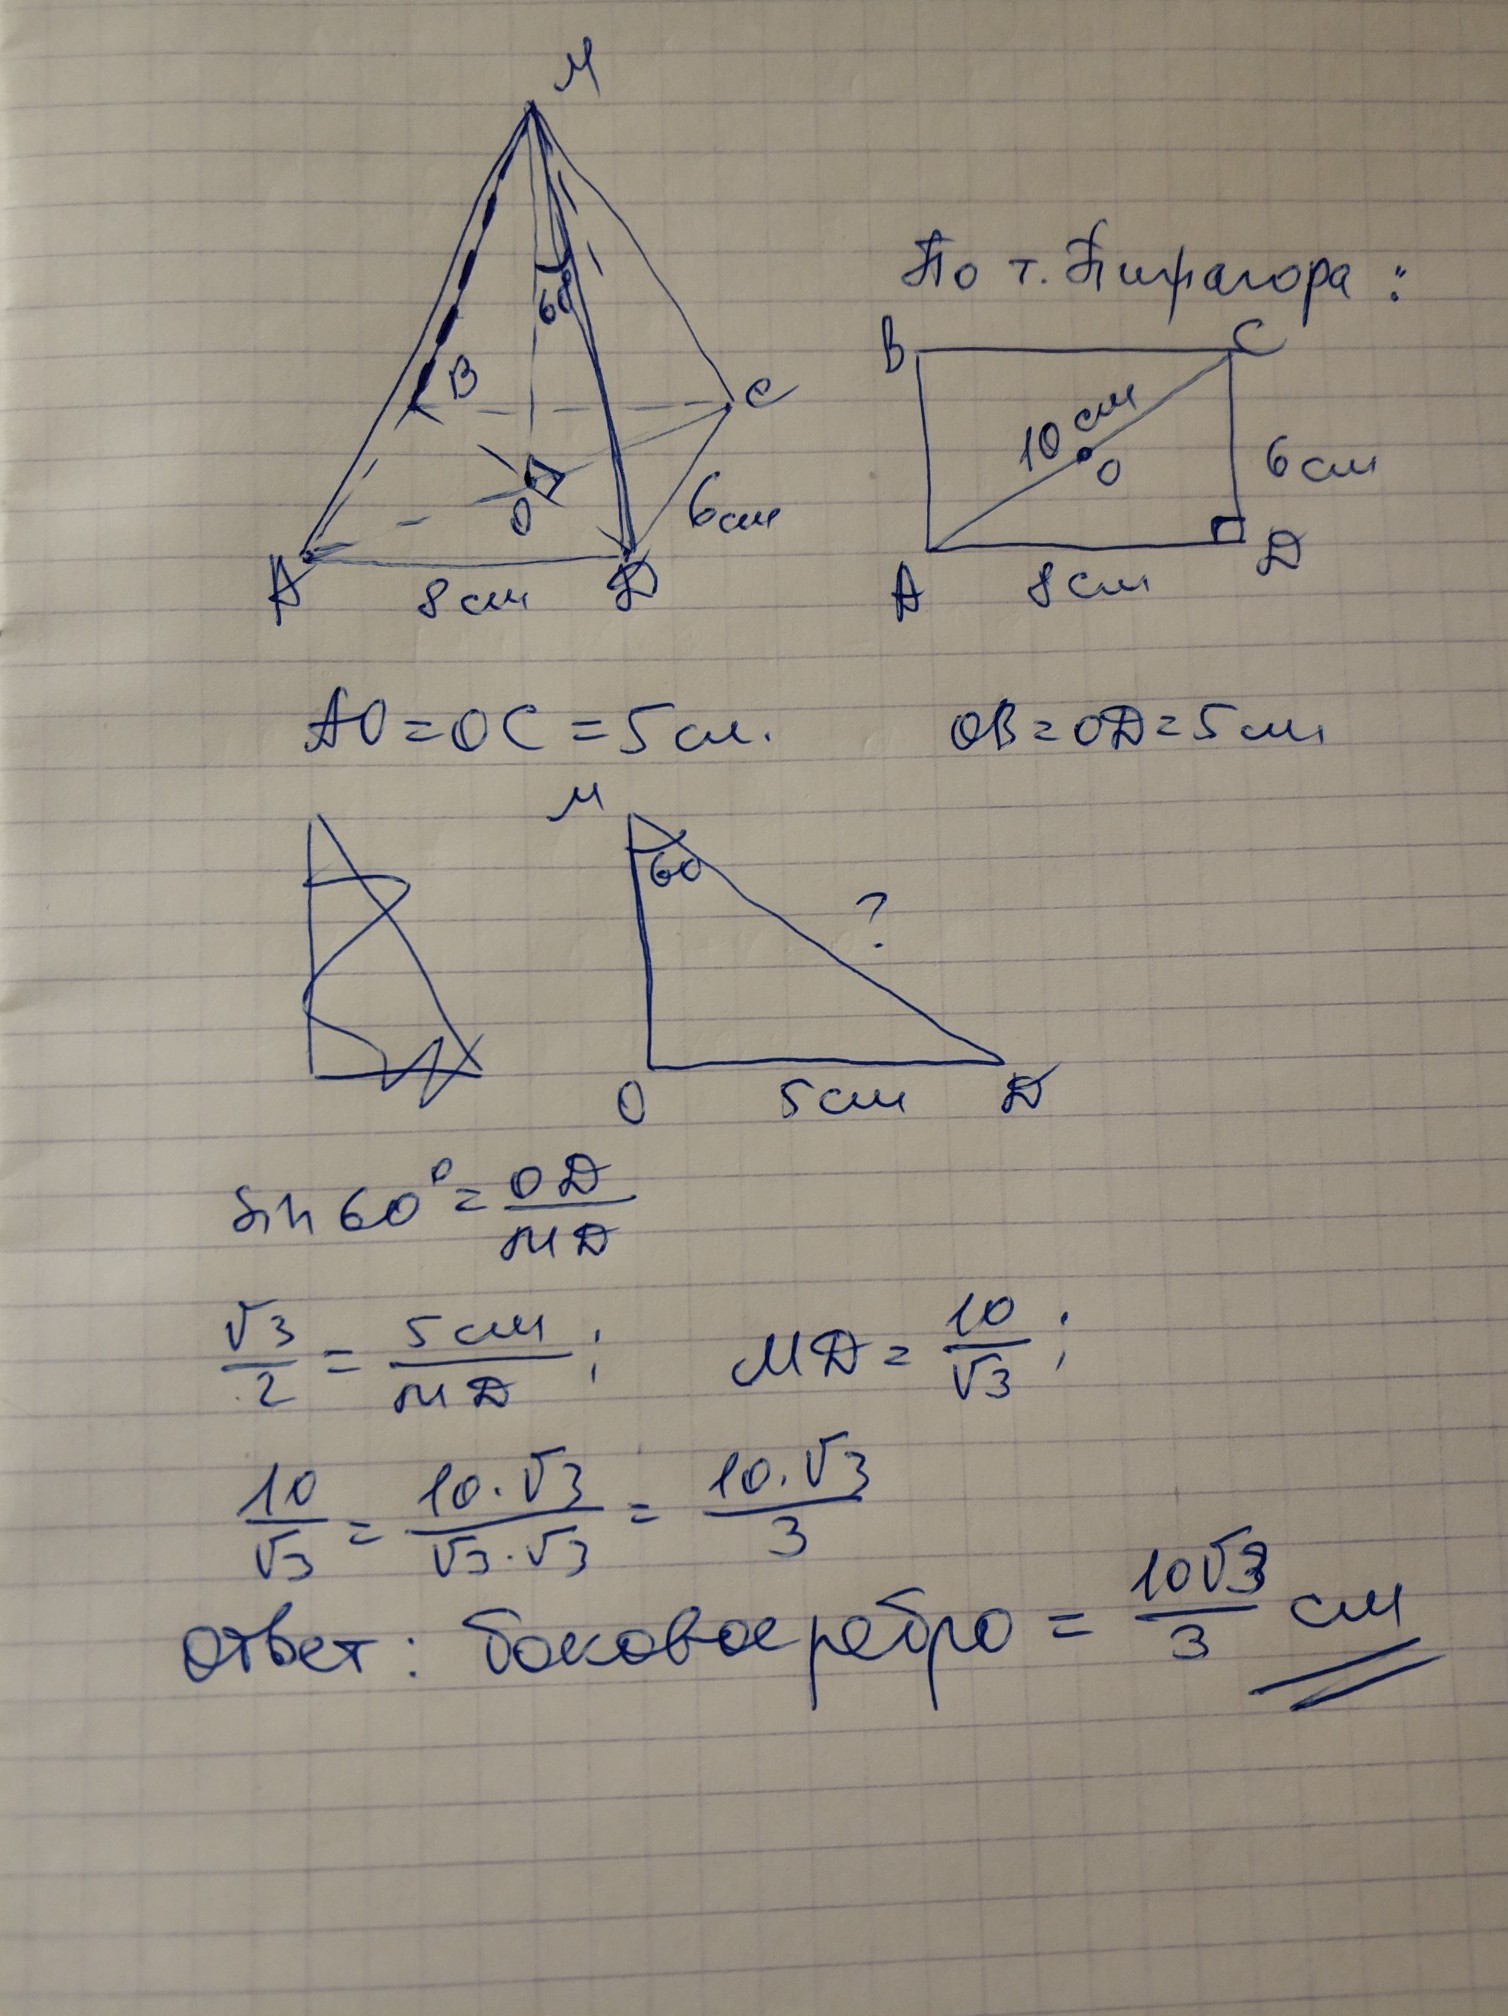 М
60°
В
С
О
6 см
А
8 см
D
По т. Пифагора:
В
С
10 см
О
6 см
А
8 см
D
АО = ОС = 5 см.
ОВ = ОD = 5 см
М
60
?
О
5 см
D
sin 60° = OD/MD
√3/2 = 5 см/MD; MD = 10/√3;
10/√3 = 10·√3/√3·√3 = 10·√3/3
Ответ: боковое ребро = 10√3/3 см